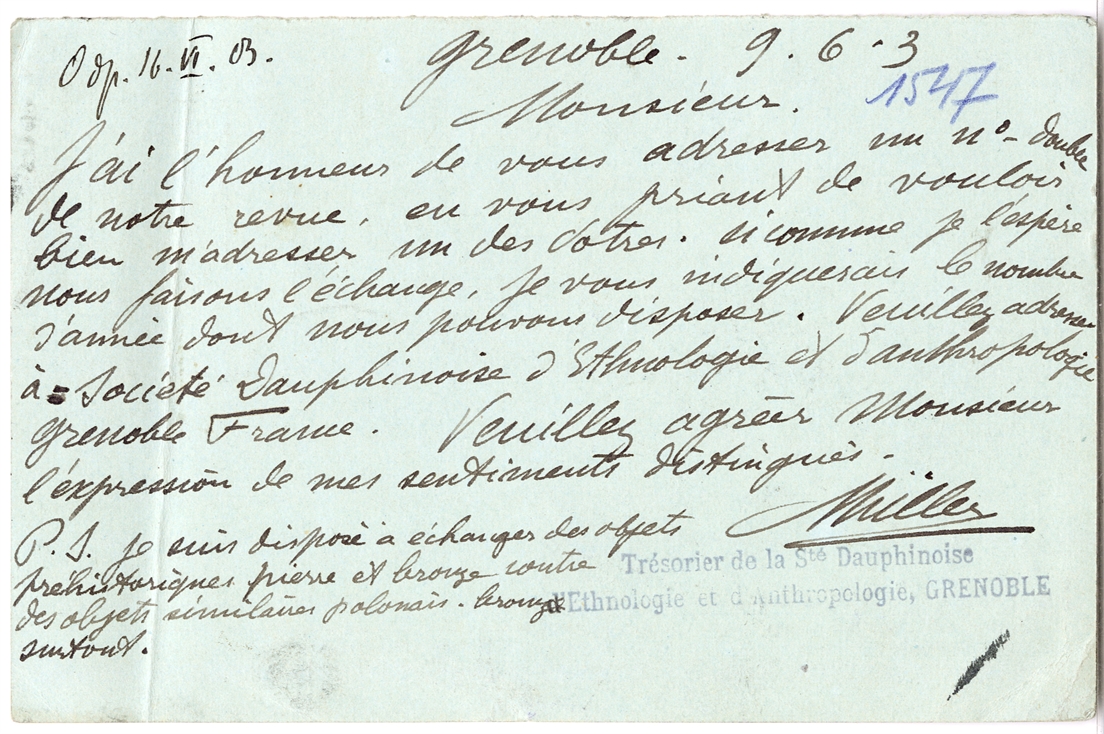 Odp. 16. VI. 03.
Grenoble. 9. 6 - 3
1547
Monsieur.
J'ai l'honneur de vous adresser un n° - double
de notre revue, en vous priant de vouloir
bien m'adresser un des votres. si comme je l'espère
nous faisons l'échange, je vous indiquerais le nombre
d'année dont nous pouvons disposer. Veuillez adresser
à = Société Dauphinoise d'Ethnologie et d'anthropologie
Grenoble France. Veuillez agréer Monsieur
l'expression de mes sentiments distingués.
Müller
P. S. je suis disposé à échanger des objets
préhistoriques pierre et bronze contre
des objets similaires polonais. bronze
surtout.
Trésorier de la Sté Dauphinoise
d'Ethnologie et d'Anthropologie, GRENOBLE